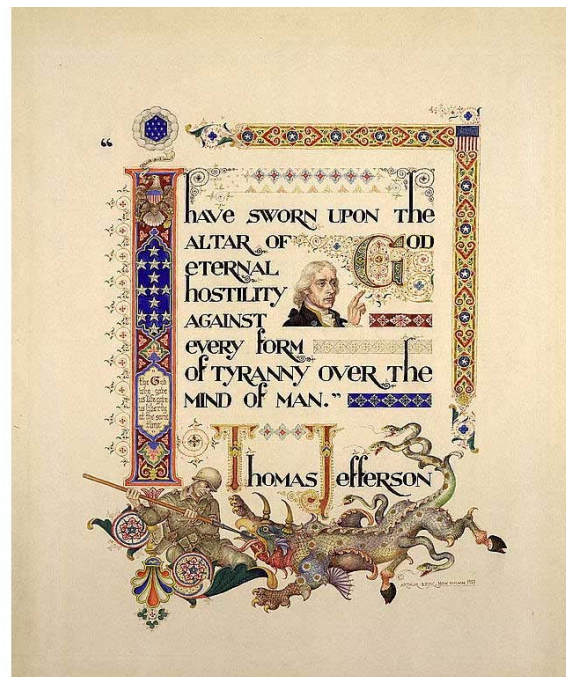 “I have SWORN UPON the
ALTAR OF GOD
eternal
hostility
AGAINST
every form
of TYRANNY OVER the
MIND OF MAN.”
Thomas Jefferson
the God
who gave
us life gave
us liberty
at the same
time
© ARTHUR SZYK, NEW CANAAN 1951